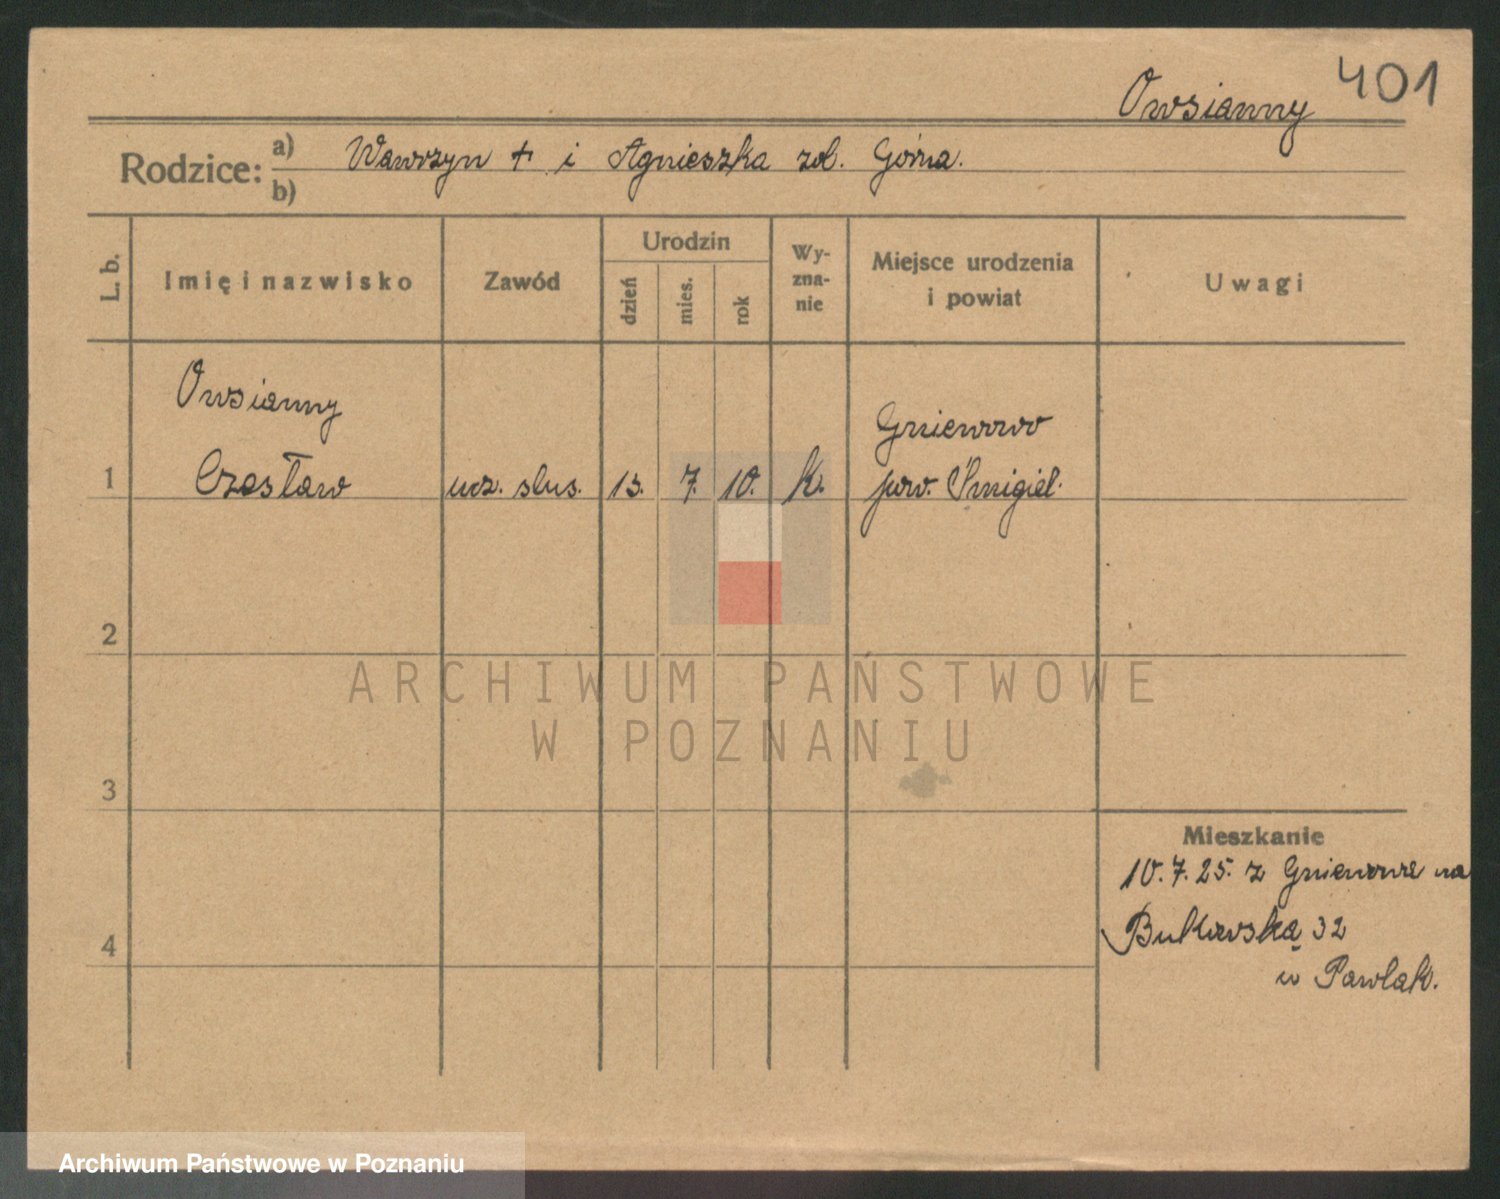 401
Owsianny
Rodzice: a) Wawrzyn + i Agnieszka zd. Górna.
b)
L. b.
Imię i nazwisko
Zawód
Urodzin
dzień
mies.
rok
Wy-
zna-
nie
Miejsce urodzenia
i powiat
Uwagi
Owsianny
Gniewowo
1 Czesław ucz. slus. 13. 7. 10. k. pow. Śmigiel.
2
ARCHIWUM PAŃSTWOWE
W POZNANIU
3
Mieszkanie
10.7.25. z Gniewowa na
Bukowską 32
4
u Pawlak.
Archiwum Państwowe w Poznaniu